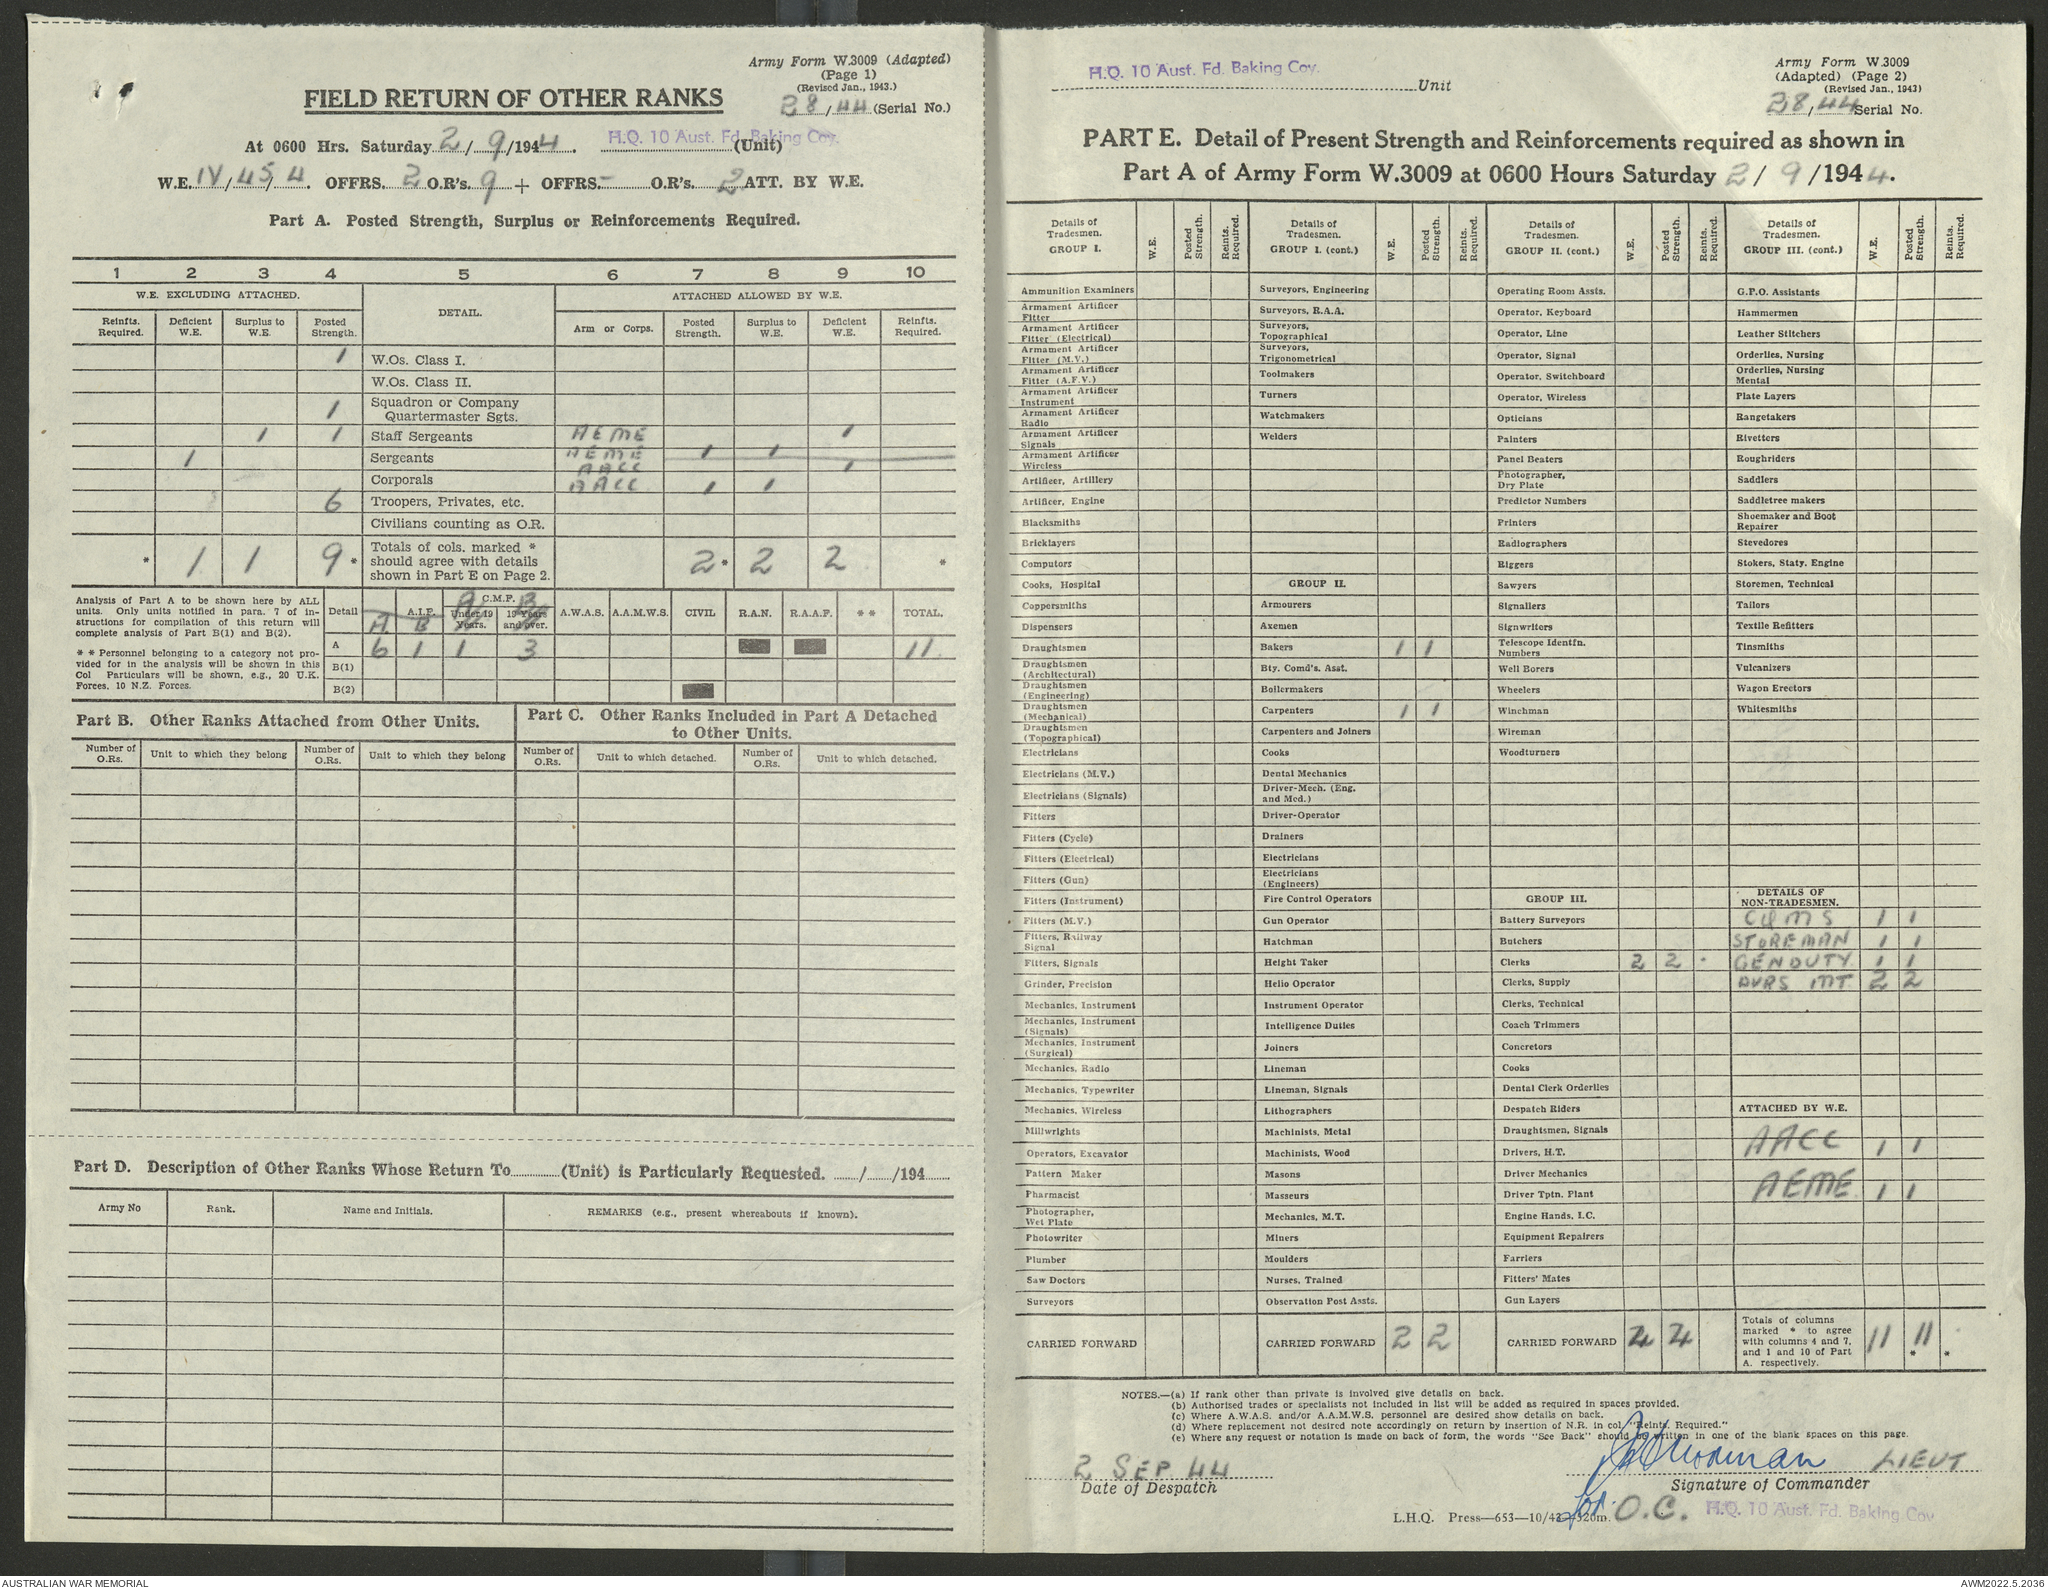 Army Form W.3009 (Adapted)
(Page 1)
(Revised Jan., 1943.)
FIELD RETURN OF OTHER RANKS
28/44 (Serial No.)
At 0600 Hrs. Saturday 2/9/1944. H.Q. 10 Aust. Fd. Baking Coy. (Unit)
W.E. IV/45/4. OFFRS. 2 O.R's. 9 + OFFRS. - O.R's. 2 ATT. BY W.E.
Part A. Posted Strength, Surplus or Reinforcements Required.
1 2 3 4 5 6 7 8 9 10
W.E. EXCLUDING ATTACHED. DETAIL. ATTACHED ALLOWED BY W.E.
Reinfts. Required. Deficient W.E. Surplus to W.E. Posted Strength. Arm or Corps. Posted Strength. Surplus to W.E. Deficient W.E. Reinfts. Required.
1 W.Os. Class I.
W.Os. Class II.
1 Squadron or Company Quartermaster Sgts.
1 1 Staff Sergeants AEME 1
1 Sergeants AEME 1 1
AACC 1
Corporals AACC 1 1
6 Troopers, Privates, etc.
Civilians counting as O.R.
* 1 1 9 * Totals of cols. marked * should agree with details shown in Part E on Page 2. 2 * 2 2 *
Analysis of Part A to be shown here by ALL units. Only units notified in para. 7 of instructions for compilation of this return will complete analysis of Part B(1) and B(2).
* * Personnel belonging to a category not provided for in the analysis will be shown in this Col Particulars will be shown, e.g., 20 U.K. Forces, 10 N.Z. Forces.
Detail A.I.F. C.M.F. Under 19 Years. 19 Years and over. A.W.A.S. A.A.M.W.S. CIVIL R.A.N. R.A.A.F. * * TOTAL.
A B A B
A 6 1 1 3 11
B(1)
B(2)
Part B. Other Ranks Attached from Other Units.
Part C. Other Ranks Included in Part A Detached to Other Units.
Number of O.Rs. Unit to which they belong Number of O.Rs. Unit to which they belong Number of O.Rs. Unit to which detached. Number of O.Rs. Unit to which detached.
Part D. Description of Other Ranks Whose Return To (Unit) is Particularly Requested. / /194
Army No Rank. Name and Initials. REMARKS (e.g., present whereabouts if known).
H.Q. 10 Aust. Fd. Baking Coy. Unit
Army Form W.3009
(Adapted) (Page 2)
(Revised Jan., 1943)
28/44 Serial No.
PART E. Detail of Present Strength and Reinforcements required as shown in
Part A of Army Form W.3009 at 0600 Hours Saturday 2/9/1944.
Details of Tradesmen. GROUP I. W.E. Posted Strength. Reints. Required.
Ammunition Examiners
Armament Artificer Fitter
Armament Artificer Fitter (Electrical)
Armament Artificer Fitter (M.V.)
Armament Artificer Fitter (A.F.V.)
Armament Artificer Instrument
Armament Artificer Radio
Armament Artificer Signals
Armament Artificer Wireless
Artificer, Artillery
Artificer, Engine
Blacksmiths
Bricklayers
Computors
Cooks, Hospital
Coppersmiths
Dispensers
Draughtsmen
Draughtsmen (Architectural)
Draughtsmen (Engineering)
Draughtsmen (Mechanical)
Draughtsmen (Topographical)
Electricians
Electricians (M.V.)
Electricians (Signals)
Fitters
Fitters (Cycle)
Fitters (Electrical)
Fitters (Gun)
Fitters (Instrument)
Fitters (M.V.)
Fitters, Railway Signal
Fitters, Signals
Grinder, Precision
Mechanics, Instrument
Mechanics, Instrument (Signals)
Mechanics, Instrument (Surgical)
Mechanics, Radio
Mechanics, Typewriter
Mechanics, Wireless
Millwrights
Operators, Excavator
Pattern Maker
Pharmacist
Photographer, Wet Plate
Photowriter
Plumber
Saw Doctors
Surveyors
CARRIED FORWARD
Details of Tradesmen. GROUP I. (cont.) W.E. Posted Strength. Reints. Required.
Surveyors, Engineering
Surveyors, R.A.A.
Surveyors, Topographical
Surveyors, Trigonometrical
Toolmakers
Turners
Watchmakers
Welders
GROUP II.
Armourers
Axemen
Bakers 1 1
Bty. Comd's. Asst.
Boilermakers
Carpenters 1 1
Carpenters and Joiners
Cooks
Dental Mechanics
Driver-Mech. (Eng. and Med.)
Driver-Operator
Drainers
Electricians
Electricians (Engineers)
Fire Control Operators
Gun Operator
Hatchman
Height Taker
Helio Operator
Instrument Operator
Intelligence Duties
Joiners
Lineman
Lineman, Signals
Lithographers
Machinists, Metal
Machinists, Wood
Masons
Masseurs
Mechanics, M.T.
Miners
Moulders
Nurses, Trained
Observation Post Assts.
CARRIED FORWARD 2 2
Details of Tradesmen. GROUP II. (cont.) W.E. Posted Strength. Reints. Required.
Operating Room Assts.
Operator, Keyboard
Operator, Line
Operator, Signal
Operator, Switchboard
Operator, Wireless
Opticians
Painters
Panel Beaters
Photographer, Dry Plate
Predictor Numbers
Printers
Radiographers
Riggers
Sawyers
Signallers
Signwriters
Telescope Identfn. Numbers
Well Borers
Wheelers
Winchman
Wireman
Woodturners
GROUP III.
Battery Surveyors
Butchers
Clerks 2 2
Clerks, Supply
Clerks, Technical
Coach Trimmers
Concretors
Cooks
Dental Clerk Orderlies
Despatch Riders
Draughtsmen, Signals
Drivers, H.T.
Driver Mechanics
Driver Tptn. Plant
Engine Hands, I.C.
Equipment Repairers
Farriers
Fitters' Mates
Gun Layers
CARRIED FORWARD 4 4
Details of Tradesmen. GROUP III. (cont.) W.E. Posted Strength. Reints. Required.
G.P.O. Assistants
Hammermen
Leather Stitchers
Orderlies, Nursing
Orderlies, Nursing Mental
Plate Layers
Rangetakers
Rivetters
Roughriders
Saddlers
Saddletree makers
Shoemaker and Boot Repairer
Stevedores
Stokers, Staty. Engine
Storemen, Technical
Tailors
Textile Refitters
Tinsmiths
Vulcanizers
Wagon Erectors
Whitesmiths
DETAILS OF NON-TRADESMEN.
CQMS 1 1
STOREMAN 1 1
GENDUTY 1 1
DVRS MT 2 2
ATTACHED BY W.E.
AACC 1 1
AEME 1 1
Totals of columns marked * to agree with columns 4 and 7, and 1 and 10 of Part A. respectively. 11 11 * *
NOTES.—(a) If rank other than private is involved give details on back.
(b) Authorised trades or specialists not included in list will be added as required in spaces provided.
(c) Where A.W.A.S. and/or A.A.M.W.S. personnel are desired show details on back.
(d) Where replacement not desired note accordingly on return by insertion of N.R. in col. "Reints. Required."
(e) Where any request or notation is made on back of form, the words "See Back" should be written in one of the blank spaces on this page.
2 SEP 44
Date of Despatch
LIEUT
Signature of Commander
for O.C. H.Q. 10 Aust. Fd. Baking Coy
L.H.Q. Press—653—10/43—320m.
AUSTRALIAN WAR MEMORIAL
AWM2022.5.2036